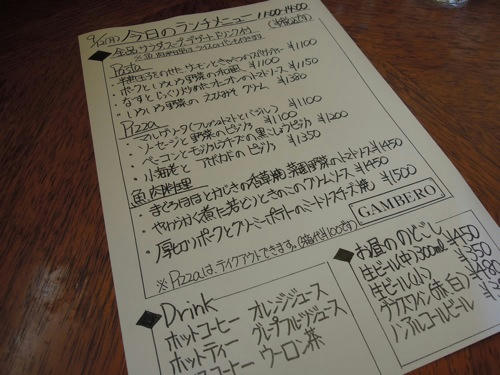 今日のランチメニュー 11:00-14:00
全品 サラダ スープ デザート ドリンク付
Pasta
サーモンときのこのスパゲティー ¥1100
・ポークといろいろ野菜の和風 ¥1100
・なすとじっくり炒めたオニオンのトマトソース ¥1150
・いろいろ野菜のえびみそクリーム ¥1380
Pizza
・マルゲリータ(フレッシュトマトとバジル) ¥1100
・ソーセージと野菜のピッツァ ¥1100
・ベーコンとモッツァレラチーズの黒こしょうピッツァ ¥1200
・小海老とアボカドのピッツァ ¥1350
魚肉料理
・まぐろほほとかじきの香草焼 菜園野菜のトマトソース ¥1450
・やわらかく煮た若どりときのこのクリームソース ¥1450
・厚切りポークとクリーミーポテトのミートソースチーズ焼 ¥1500
※Pizzaは、テイクアウトできます。(箱代¥100です)
GAMBERO
◆Drink
ホットコーヒー オレンジジュース
ホットティー グレープフルーツジュース
コーヒー ウーロン茶
◆お昼ののどごし
生ビール(中)300ml ¥450
生ビール(小) ¥350
グラスワイン(赤・白)
ノンアルコールビール